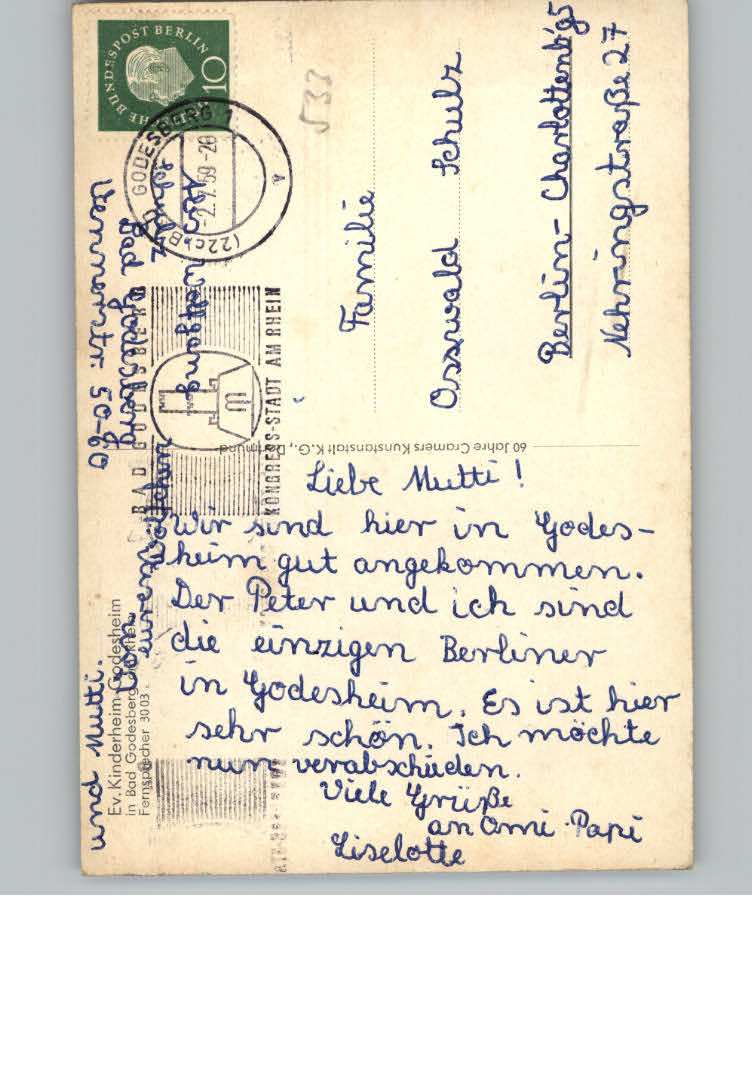 Liebe Mutti!
Wir sind hier in Godes-
heim gut angekommen.
Der Peter und ich sind
die einzigen Berliner
in Godesheim. Es ist hier
sehr schön. Ich möchte
nun verabschieden.
Viele Grüße
an Omi Papi
Liselotte
und Mutti.
Von
euren Wölfchen
Familie
Osswald Schulz
Berlin-Charlottenb'g5
Nehringstraße 27
Wolfgang
Schulz
Bad Godesberg
Vennerstr. 50-60
Ev. Kinderheim Godesheim
in Bad Godesberg
Fernsprecher 3003
60 Jahre Cramers Kunstanstalt K.G., Dortmund
DEUTSCHE BUNDESPOST BERLIN
10
(22c) BAD GODESBERG 1
-2.7.59-20
BAD GODESBERG
KONGRESS-STADT AM RHEIN
533